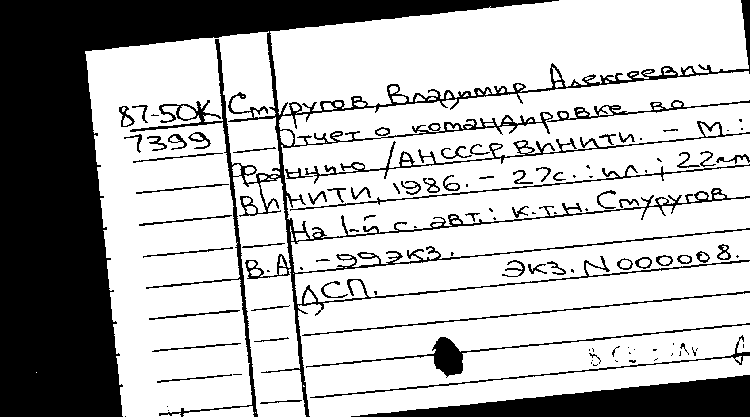 87-50К Стуругов, Владимир Алексеевич.
7399 Отчет о командировке во
Францию /АНСССР, ВИНИТИ. - М.:
ВИНИТИ, 1986. - 27с.: ил.; 22см
На 1-й с. авт.: к.т.н. Стуругов
В.А. - 99экз.
ДСП. Экз. N000008.